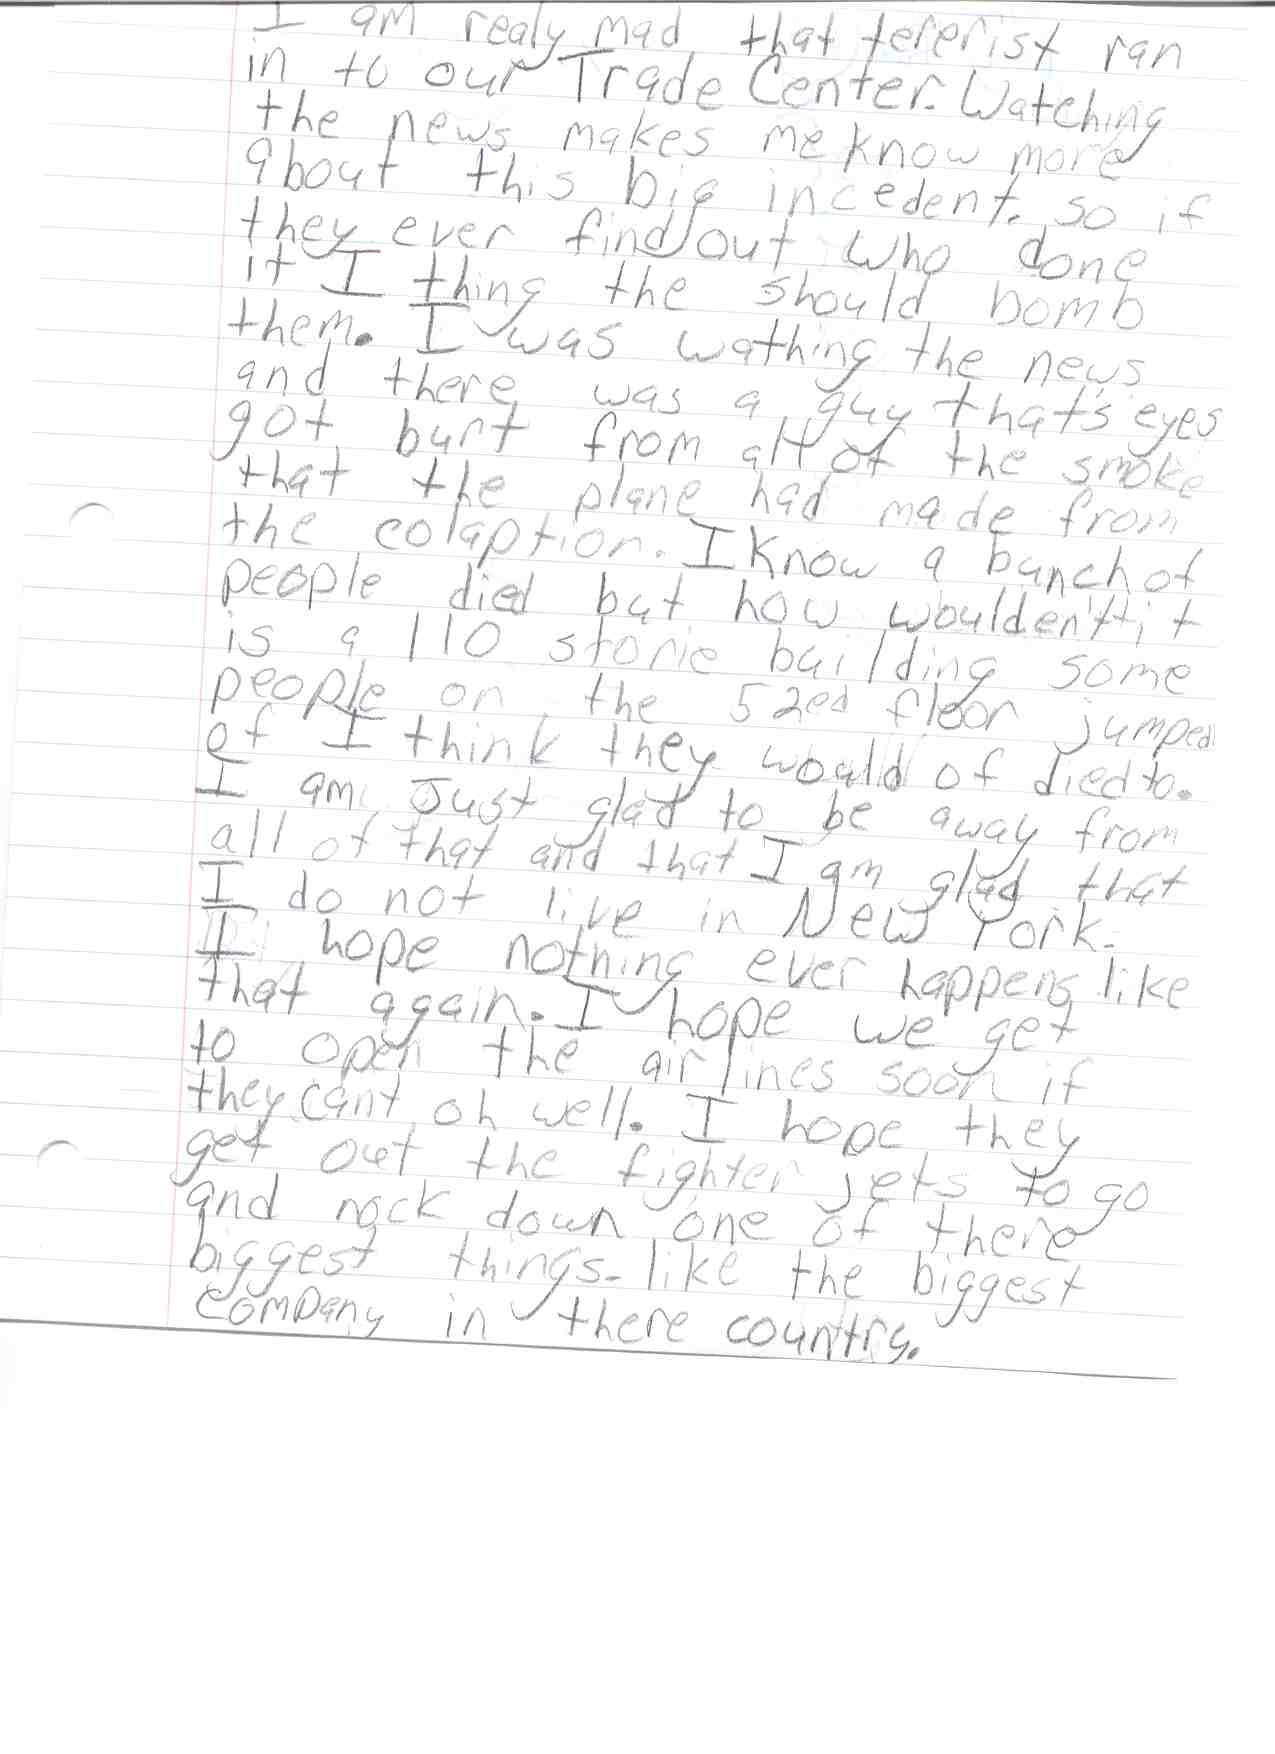 I am realy mad that tererist ran
in to our Trade Center. Watching
the news makes me know more
about this big incedent. so if
they ever find out who done
it I thing the should bomb
them. I was wathing the news
and there was a guy that's eyes
got burt from all of the smoke
that the plane had made from
the colaption. I know a bunch of
people died but how woulden't it
is a 110 storie building some
people on the 52ed floor jumped
of I think they would of died to.
I am Just glad to be away from
all of that and that I am glad that
I do not live in New York.
I hope nothing ever happens like
that again. I hope we get
to open the air lines soon if
they cant oh well. I hope they
get out the fighter jets to go
and nock down one of there
biggest things. like the biggest
company in there country.